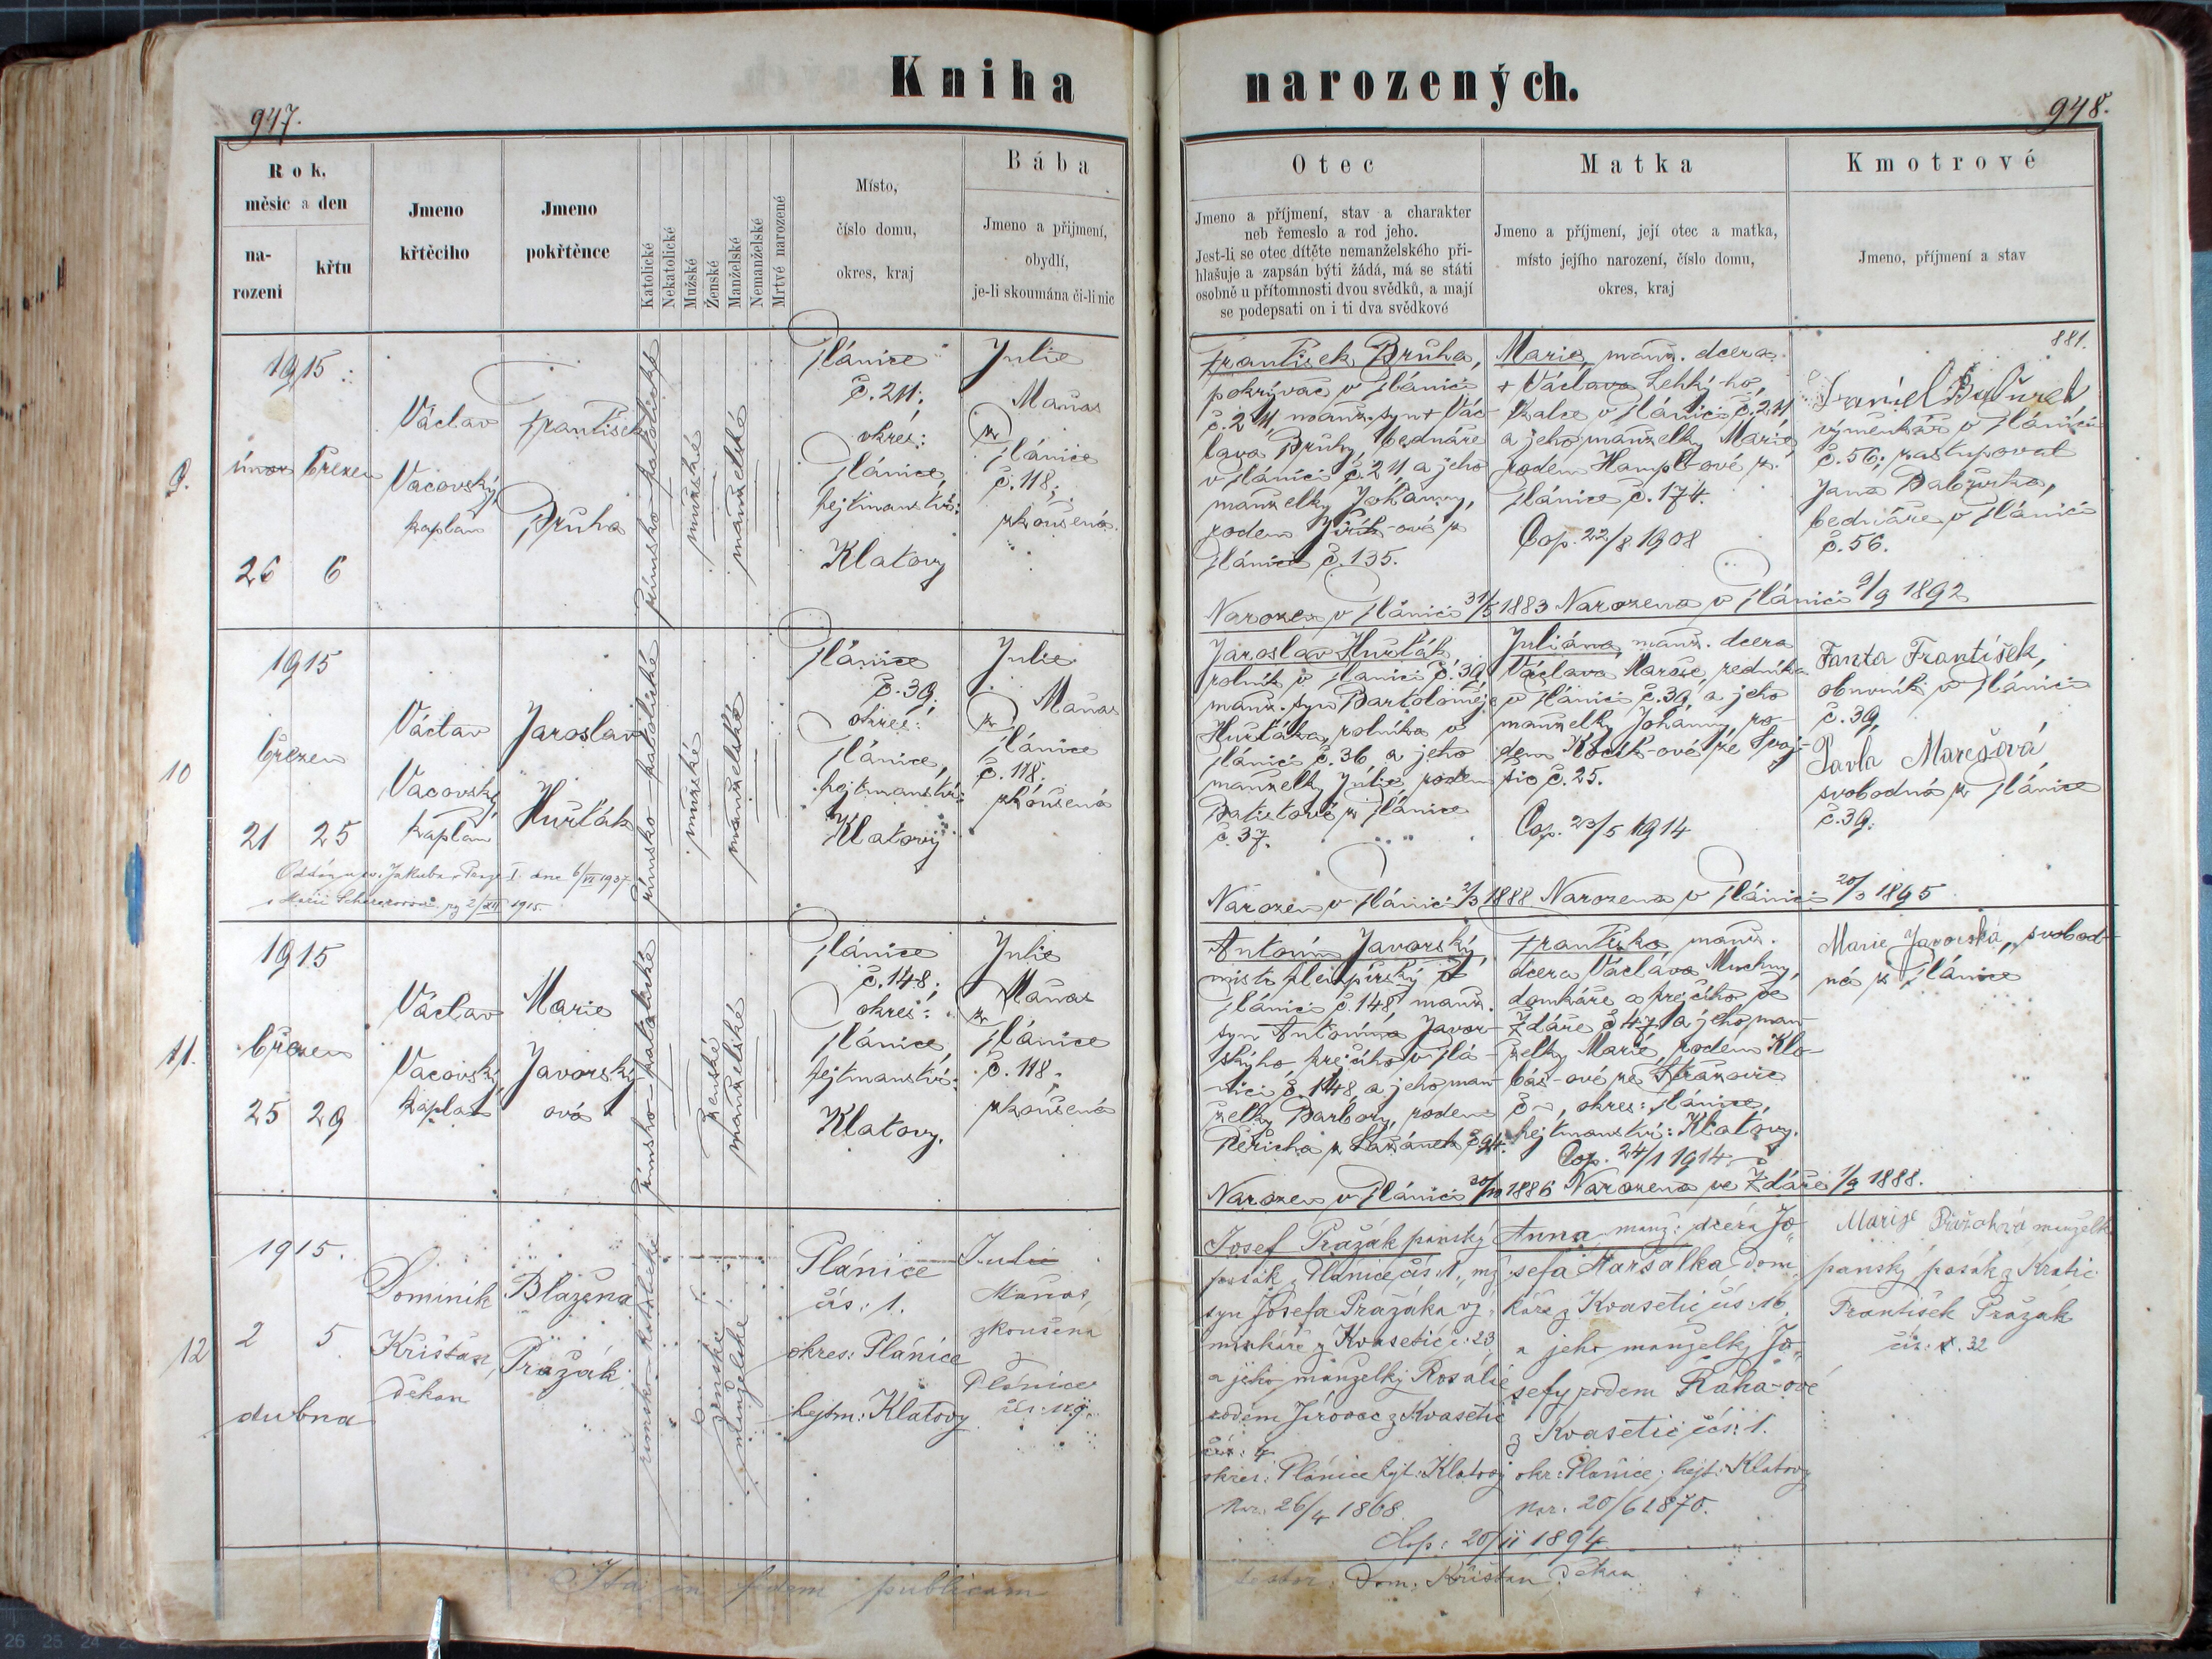 Kniha narozených.
947.
948.
Rok, měsíc a den
na-
rození
křtu
Jmeno
křtěcího
Jmeno
pokřtěnce
Katolické
Nekatolické
Mužské
Ženské
Manželské
Nemanželské
Mrtvé narozené
Místo,
číslo domu,
okres, kraj
Bába
Jmeno a přijmení,
obydlí,
je-li skoumána či-li nic
Otec
Jmeno a příjmení, stav a charakter
neb řemeslo a rod jeho.
Jest-li se otec dítěte nemanželského při-
hlašuje a zapsán býti žádá, má se státi
osobně u přítomnosti dvou svědků, a mají
se podepsati on i ti dva svědkové
Matka
Jmeno a příjmení, její otec a matka,
místo jejího narození, číslo domu,
okres, kraj
Kmotrové
Jmeno, příjmení a stav
881.
9.
1915
únor březen
26 6
Václav
Vacovský,
kaplan
František
Průha
římsko-katolické
mužské
manželské
Plánice
č. 211;
okres:
Plánice,
hejtmanství:
Klatovy
Julie
Maňas
z
Plánice
č. 118;
zkoušená.
František Průha,
pokrývač v Plánici
č. 211, manž. syn + Vác-
lava Průhy, bednáře
v Plánici č. 211 a jeho
manželky Johanny,
rodem
Plánice č. 135.
Narozen v Plánici 31/5 1883
Marie, manž. dcera
+ Václava Lehký-ho,
tkalce v Plánici č. 211
a jeho manželky Marie,
rodem Hampl-ové z
Plánice č. 174.
Cop. 22/8 1908
Narozena v Plánici 9/9 1892
Daniel
výměnkář v Plánici
č. 56; zastupoval
Jana
bednáře v Plánici
č. 56.
10
1915
březen
21 25
Václav
Vacovský,
kaplan
Jaroslav
Huřťák
římsko-katolické
mužské
manželské
Oddán u sv. Jakuba v Praze I. dne 6/VI 1937
s Marií
Plánice
č. 39;
okres:
Plánice,
hejtmanství:
Klatovy
Julie
Maňas
z
Plánice
č. 118.
zkoušená
Jaroslav Huřťák
rolník v Plánici č. 39,
manž. syn Bartoloměje
Huřťáka, rolníka v
Plánici č. 36 a jeho
manželky Julie, rodem
Batistové z Plánice
č. 37.
Narozen v Plánici 2/3 1888
Juliána, manž. dcera
Václava Mareše, řezníka
v Plánici č. 39, a jeho
manželky Johanny, ro-
dem Kocík-ové ze Svoj-
šic č. 25.
Cop. 23/5 1914
Narozena v Plánici 20/3 1895
Fanta František,
obuvník v Plánici
č. 39,
Pavla Marešová,
svobodná z Plánice
č. 39.
11.
1915
březen
25 29
Václav
Vacovský,
kaplan
Marie
Javorský
ová
římsko-katolické
ženské
manželské
Plánice
č. 148;
okres:
Plánice,
hejtmanství:
Klatovy.
Julie
Maňas
z
Plánice
č. 118.
zkoušená
Antonín Javorský,
mistr klempířský v
Plánici č. 148 manž.
syn Antonína Javor-
ského, krejčího v Plá-
nici č. 148, a jeho man-
želky Barbory, rodem
Peřicha z Lažánek č. 94.
Narozen v Plánici 30/10 1886
Františka manž.
dcera Václava Muchny,
domkáře a krejčího ve
Ždáře č 47, a jeho man-
želky Marie, rodem Klo-
bás-ové ze Strážovic
č –, okres: Plánice,
hejtmanství: Klatovy.
Cop. 24/1 1914
Narozena ve Ždáře 1/9 1888.
Marie Javorská, svobod-
ná z Plánice
12
1915.
2 5
dubna
Dominik
Křišťan,
děkan
Blažena
Pražák
římsko-katolické
ženské
manželské
Plánice
čís: 1.
okres: Plánice
hejtm: Klatovy
Julie
Maňas,
zkoušená
z
Plánice
čís: 119.
Josef Pražák panský
pasák z Plánice čís: 1, mž.
syn Josefa Pražáka vý-
minkáře z Kvasetic č: 23,
a jeho manželky Rosalie
rodem Jírovec z Kvasetic
čís: 4
okres: Plánice hejt: Klatovy
Nar: 26/4 1868.
Anna manž: dcera Jo-
sefa Maršálka dom-
káře z Kvasetic čís: 16
a jeho manželky Jo-
sefy rodem Řáha-ové
z Kvasetic čís: 1.
okr: Plánice; hejt: Klatovy
Nar. 20/6 1870.
Cop: 20/ii 1894
Marie Pražáková manželka
panský pasák z Kratic
František Pražák
čís: 32
Ita in fidem publicam
testor: Dom: Křišťan, děkan